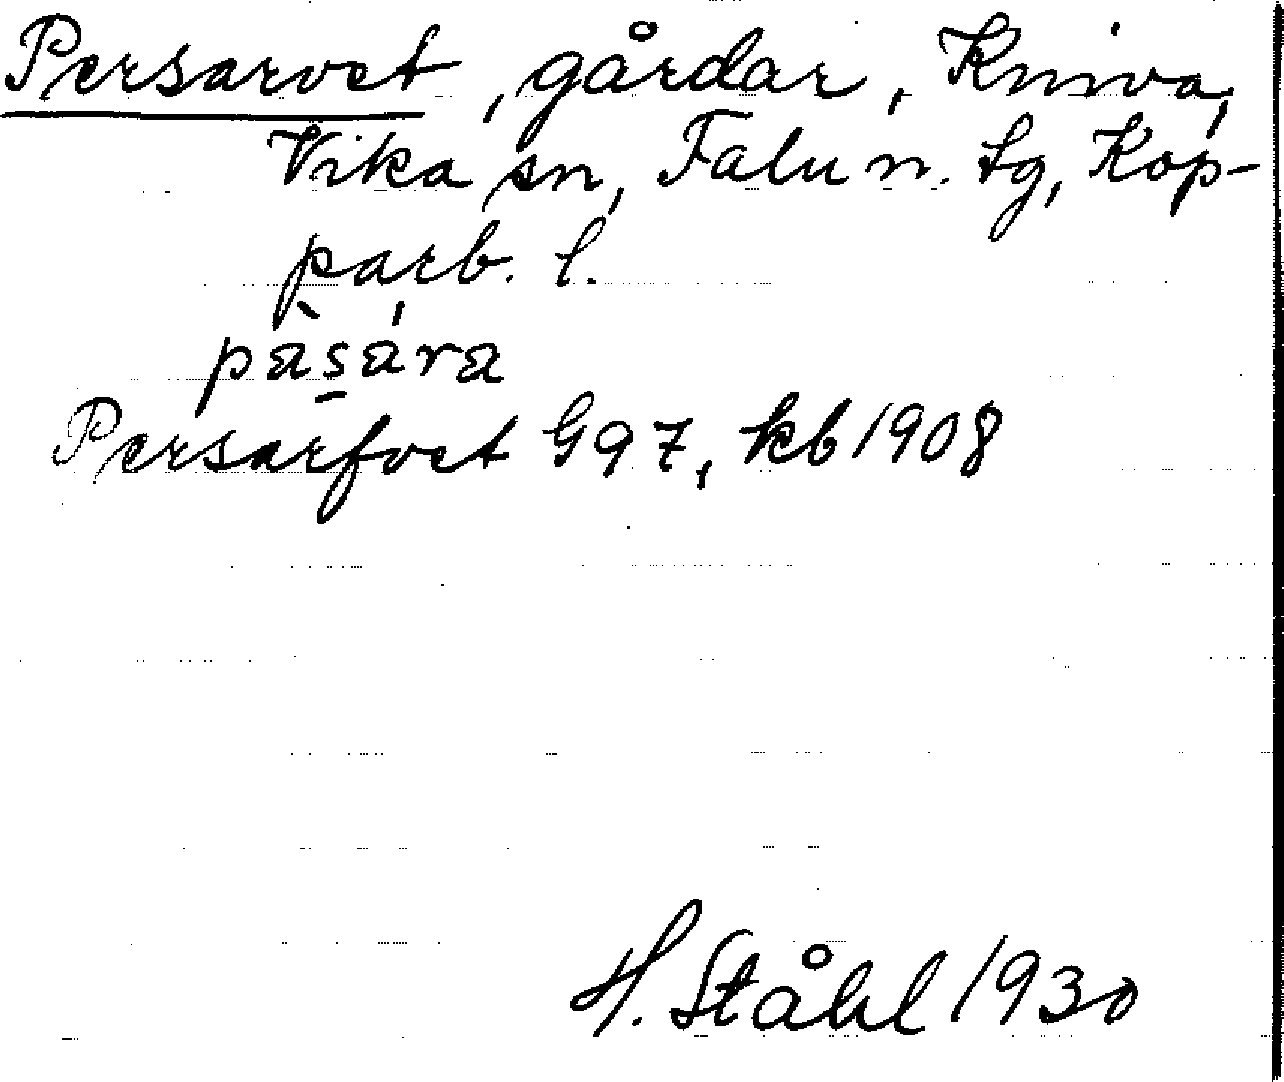 Persarvet, gårdar, Kniva,
Vika sn, Falu n. tg, Kop-
parb. l.
pàs̠a̍ra
Persarfvet G97, kb 1908
H. Ståhl 1930